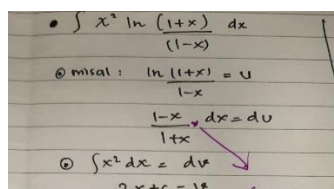 • ∫ x² ln (1+x)/(1-x) dx
⊙ misal : ln (1+x)/1-x = u
1-x/1+x . dx = du
⊙ ∫x² dx = dv